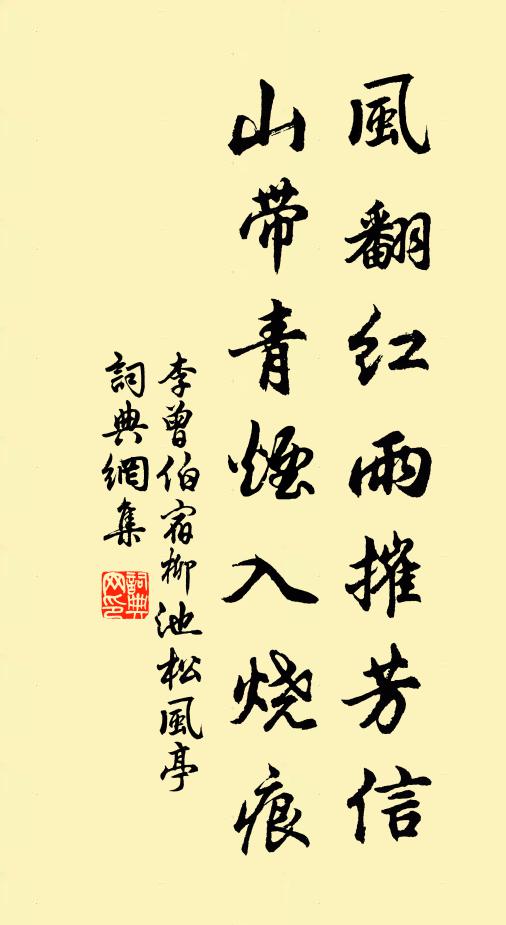 風翻红雨摧芳信
山带青煙入烧痕
李曾伯宿柳池松風亭
詞典網集
詞典
网印